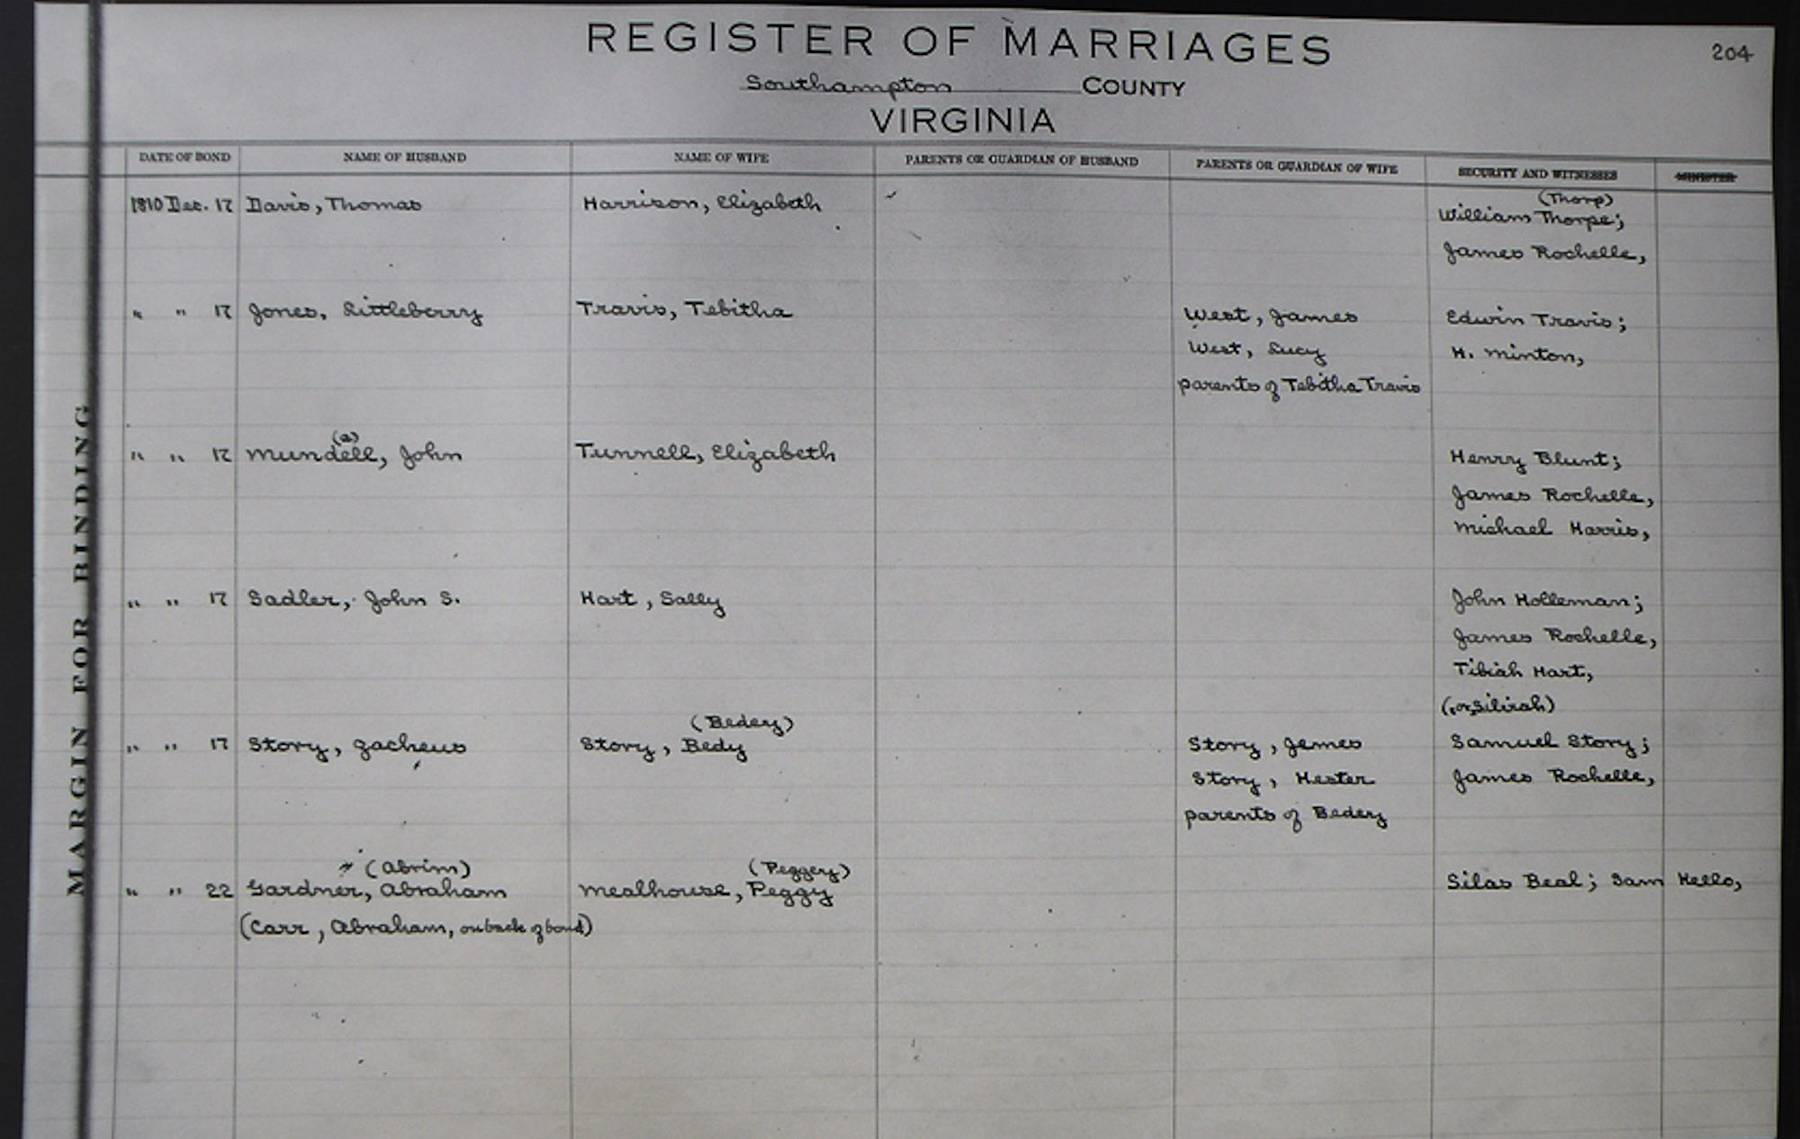 REGISTER OF MARRIAGES
204
Southampton COUNTY
VIRGINIA
DATE OF BOND NAME OF HUSBAND NAME OF WIFE PARENTS OR GUARDIAN OF HUSBAND PARENTS OR GUARDIAN OF WIFE SECURITY AND WITNESSES MINISTER
(Thorp)
1810 Dec. 17 Davis, Thomas Harrison, Elizabeth William Thorpe;
James Rochelle,
" " 17 Jones, Littleberry Travis, Tebitha West, James Edwin Travis;
West, Lucy H. Minton,
parents of Tebitha Travis
(a)
" " 17 Mundell, John Tunnell, Elizabeth Henry Blunt;
James Rochelle,
Michael Harris,
" " 17 Sadler, John S. Hart, Sally John Holleman;
James Rochelle,
Tibiah Hart,
(or Silirah)
(Bedery)
" " 17 Story, Zacheus Story, Bedy Story, James Samuel Story;
Story, Hester James Rochelle,
parents of Bedery
(Abrim) (Peggery)
" " 22 Gardner, Abraham Mealhouse, Peggy Silas Beal; Sam Kello,
(Carr, Abraham, on back of bond)
MARGIN FOR BINDING